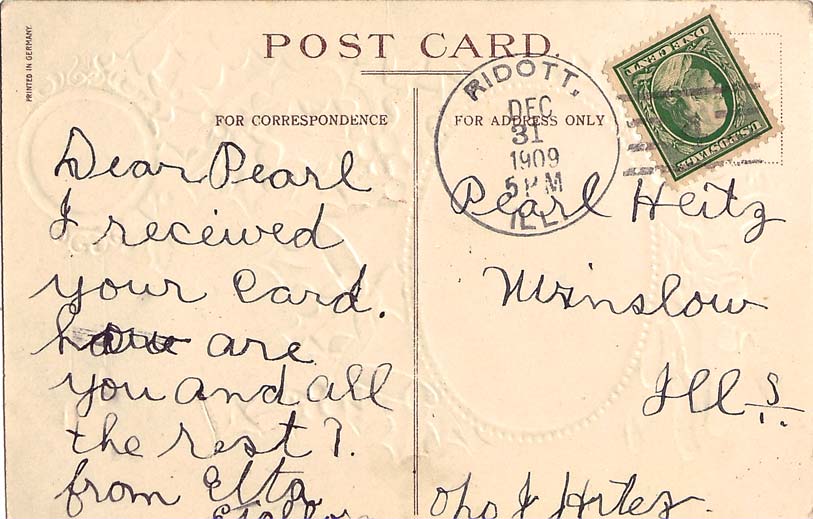 PRINTED IN GERMANY.
POST CARD.
FOR CORRESPONDENCE
Dear Pearl
I received
your card.
how are
you and all
the rest?.
from Elta
FOR ADDRESS ONLY
RIDOTT,
DEC
31
1909
5 PM
ILL.
U.S. POSTAGE
ONE CENT
Pearl Heitz
Winslow
Ills.